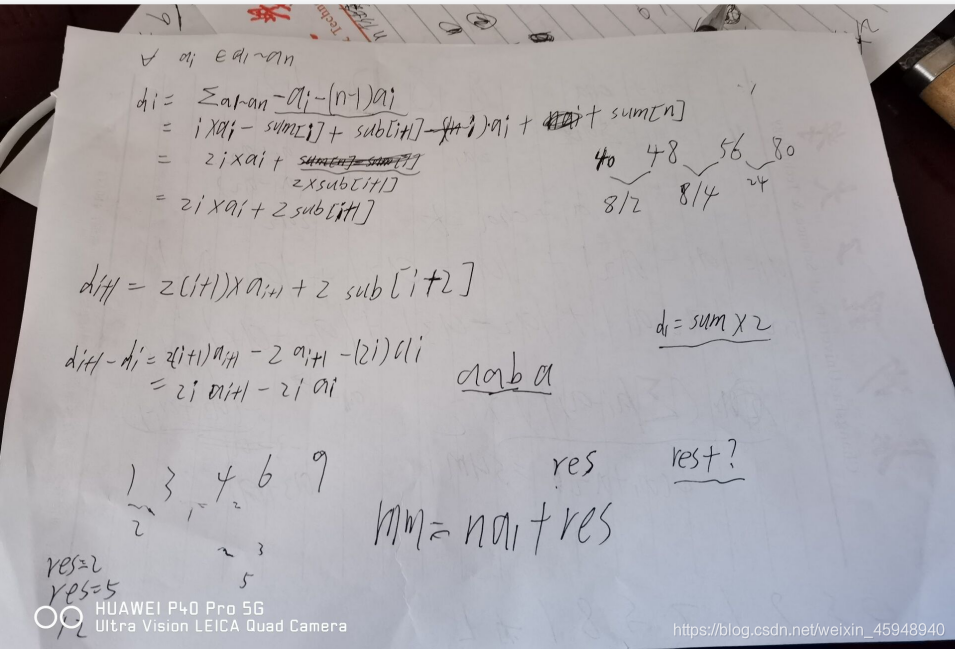 ∀ ai ∈ a1~an
di = Σa1~an - ai - (n-1)ai
= i×ai - sum[i] + sub[i+1] + sum[n]
= 2i×ai +
2×sub[i+1]
= 2i×ai + 2sub[i+1]
40 48 56 80
8/2 8/4 24
di+1 = 2(i+1)×ai+1 + 2 sub[i+2]
d1 = sum×2
di+1 - di = 2(i+1)ai+1 - 2ai+1 - (2i)ai
= 2i ai+1 - 2i ai
aaba
1 3 4 6 9
2 1 2
3
5
res res+?
mm = na1 + res
res=2
res=5
12
HUAWEI P40 Pro 5G
Ultra Vision LEICA Quad Camera
https://blog.csdn.net/weixin_45948940